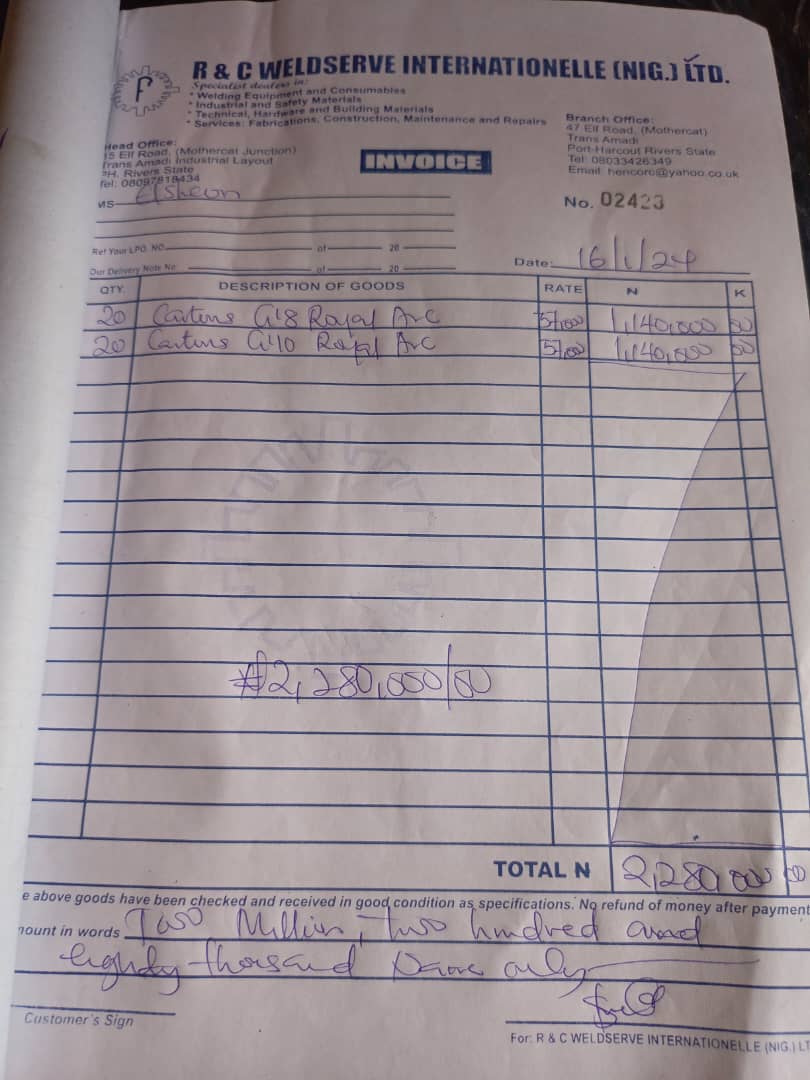 R & C WELDSERVE INTERNATIONELLE (NIG.) LTD.
Specialist dealers in:
* Welding Equipment and Consumables
* Industrial and Safety Materials
* Technical, Hardware and Building Materials
* Services: Fabrications, Construction, Maintenance and Repairs
Head Office:
15 Elf Road, (Mothercat Junction)
Trans Amadi Industrial Layout
PH. Rivers State
Tel: 08097818434
Branch Office:
47 Elf Road, (Mothercat)
Trans Amadi
Port-Harcout Rivers State
Tel: 08033426349
Email: hencoro@yahoo.co.uk
INVOICE
No. 02423
M/S
Ref Your LPO. NO. of 20
Our Delivery Note No of 20
Date: 16/1/24
QTY. DESCRIPTION OF GOODS RATE N K
20 Cartons G'8 Royal Arc 57,000 1,140,000 00
20 Cartons G'10 Royal Arc 57,000 1,140,000 00
₦2,280,000/00
TOTAL N 2,280,000 00
e above goods have been checked and received in good condition as specifications. No refund of money after payment
nount in words Two Million, two hundred and
eighty thousand Naira only
Customer's Sign
For: R & C WELDSERVE INTERNATIONELLE (NIG.) LT